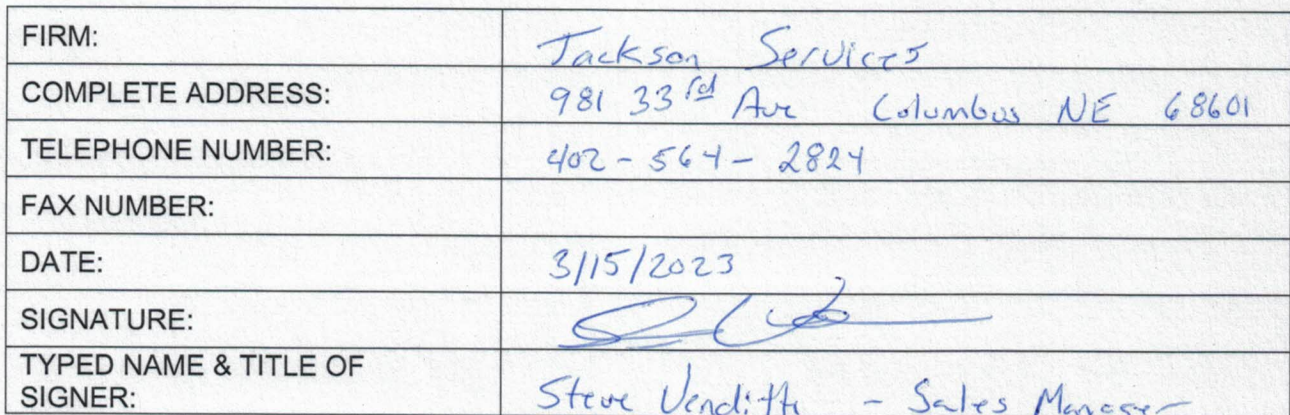 FIRM: Jackson Services
COMPLETE ADDRESS: 981 33rd Ave Columbus NE 68601
TELEPHONE NUMBER: 402-564-2824
FAX NUMBER:
DATE: 3/15/2023
SIGNATURE:
TYPED NAME & TITLE OF
SIGNER: Steve Venditte - Sales Manager